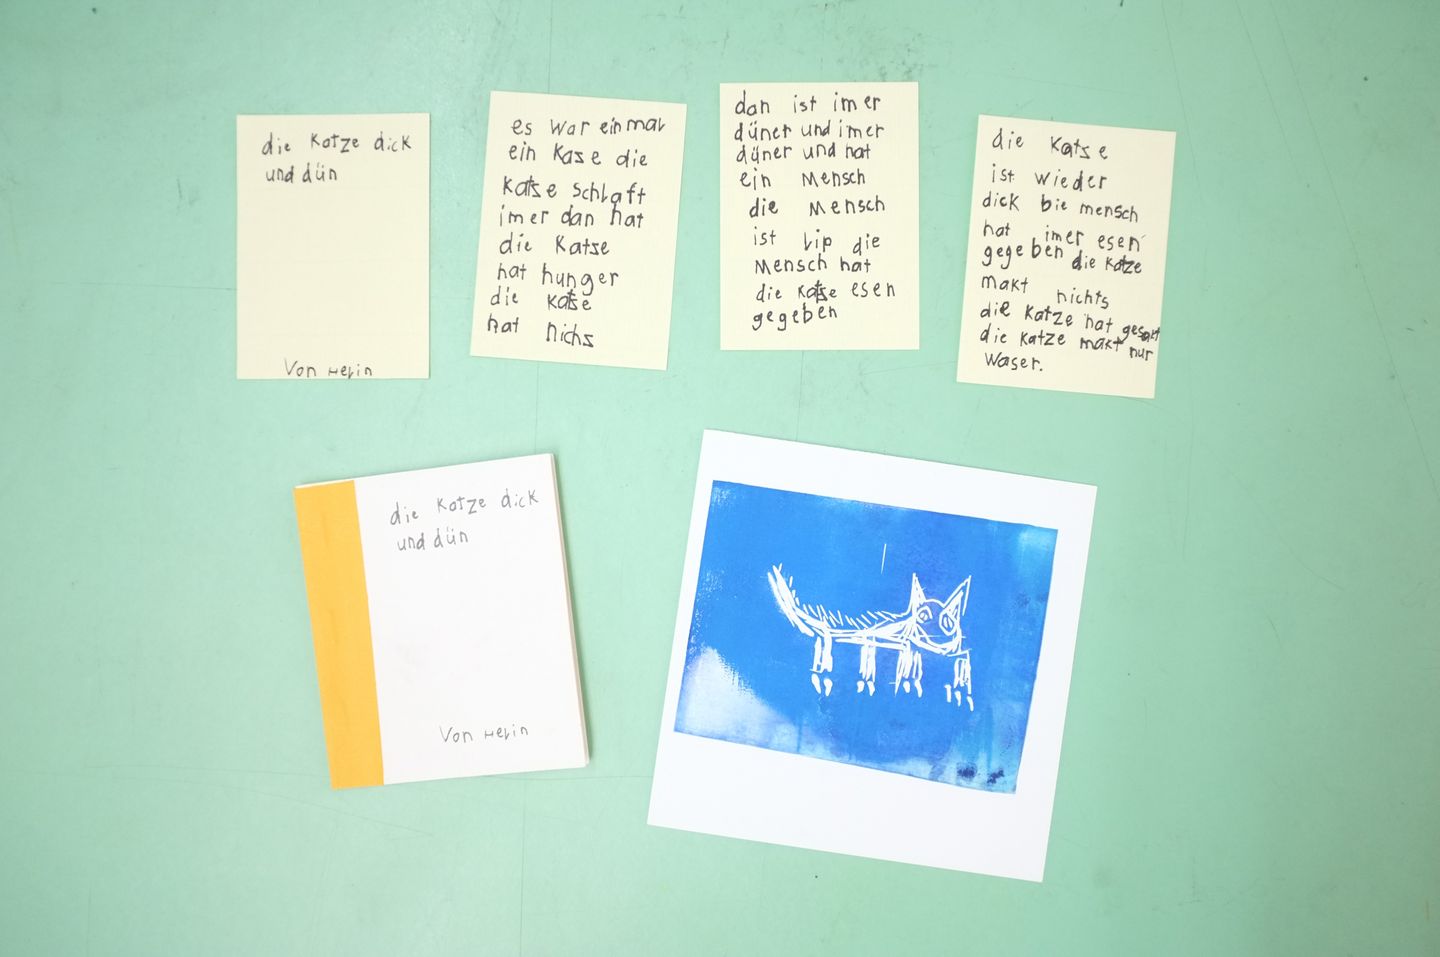 die Katze dick
und dün
Von Helin
es war einmal
ein Kaze die
Katse schlaft
imer dan hat
die Katse
hat hunger
die Katse
hat nichs
dan ist imer
düner und imer
düner und hat
ein Mensch
die Mensch
ist lip die
Mensch hat
die Katse esen
gegeben
die Katse
ist wieder
dick bie mensch
hat imer esen
gegeben die Katze
makt nichts
die Katze hat gesakt
die Katze makt nur
Waser.
die Katze dick
und dün
Von Helin